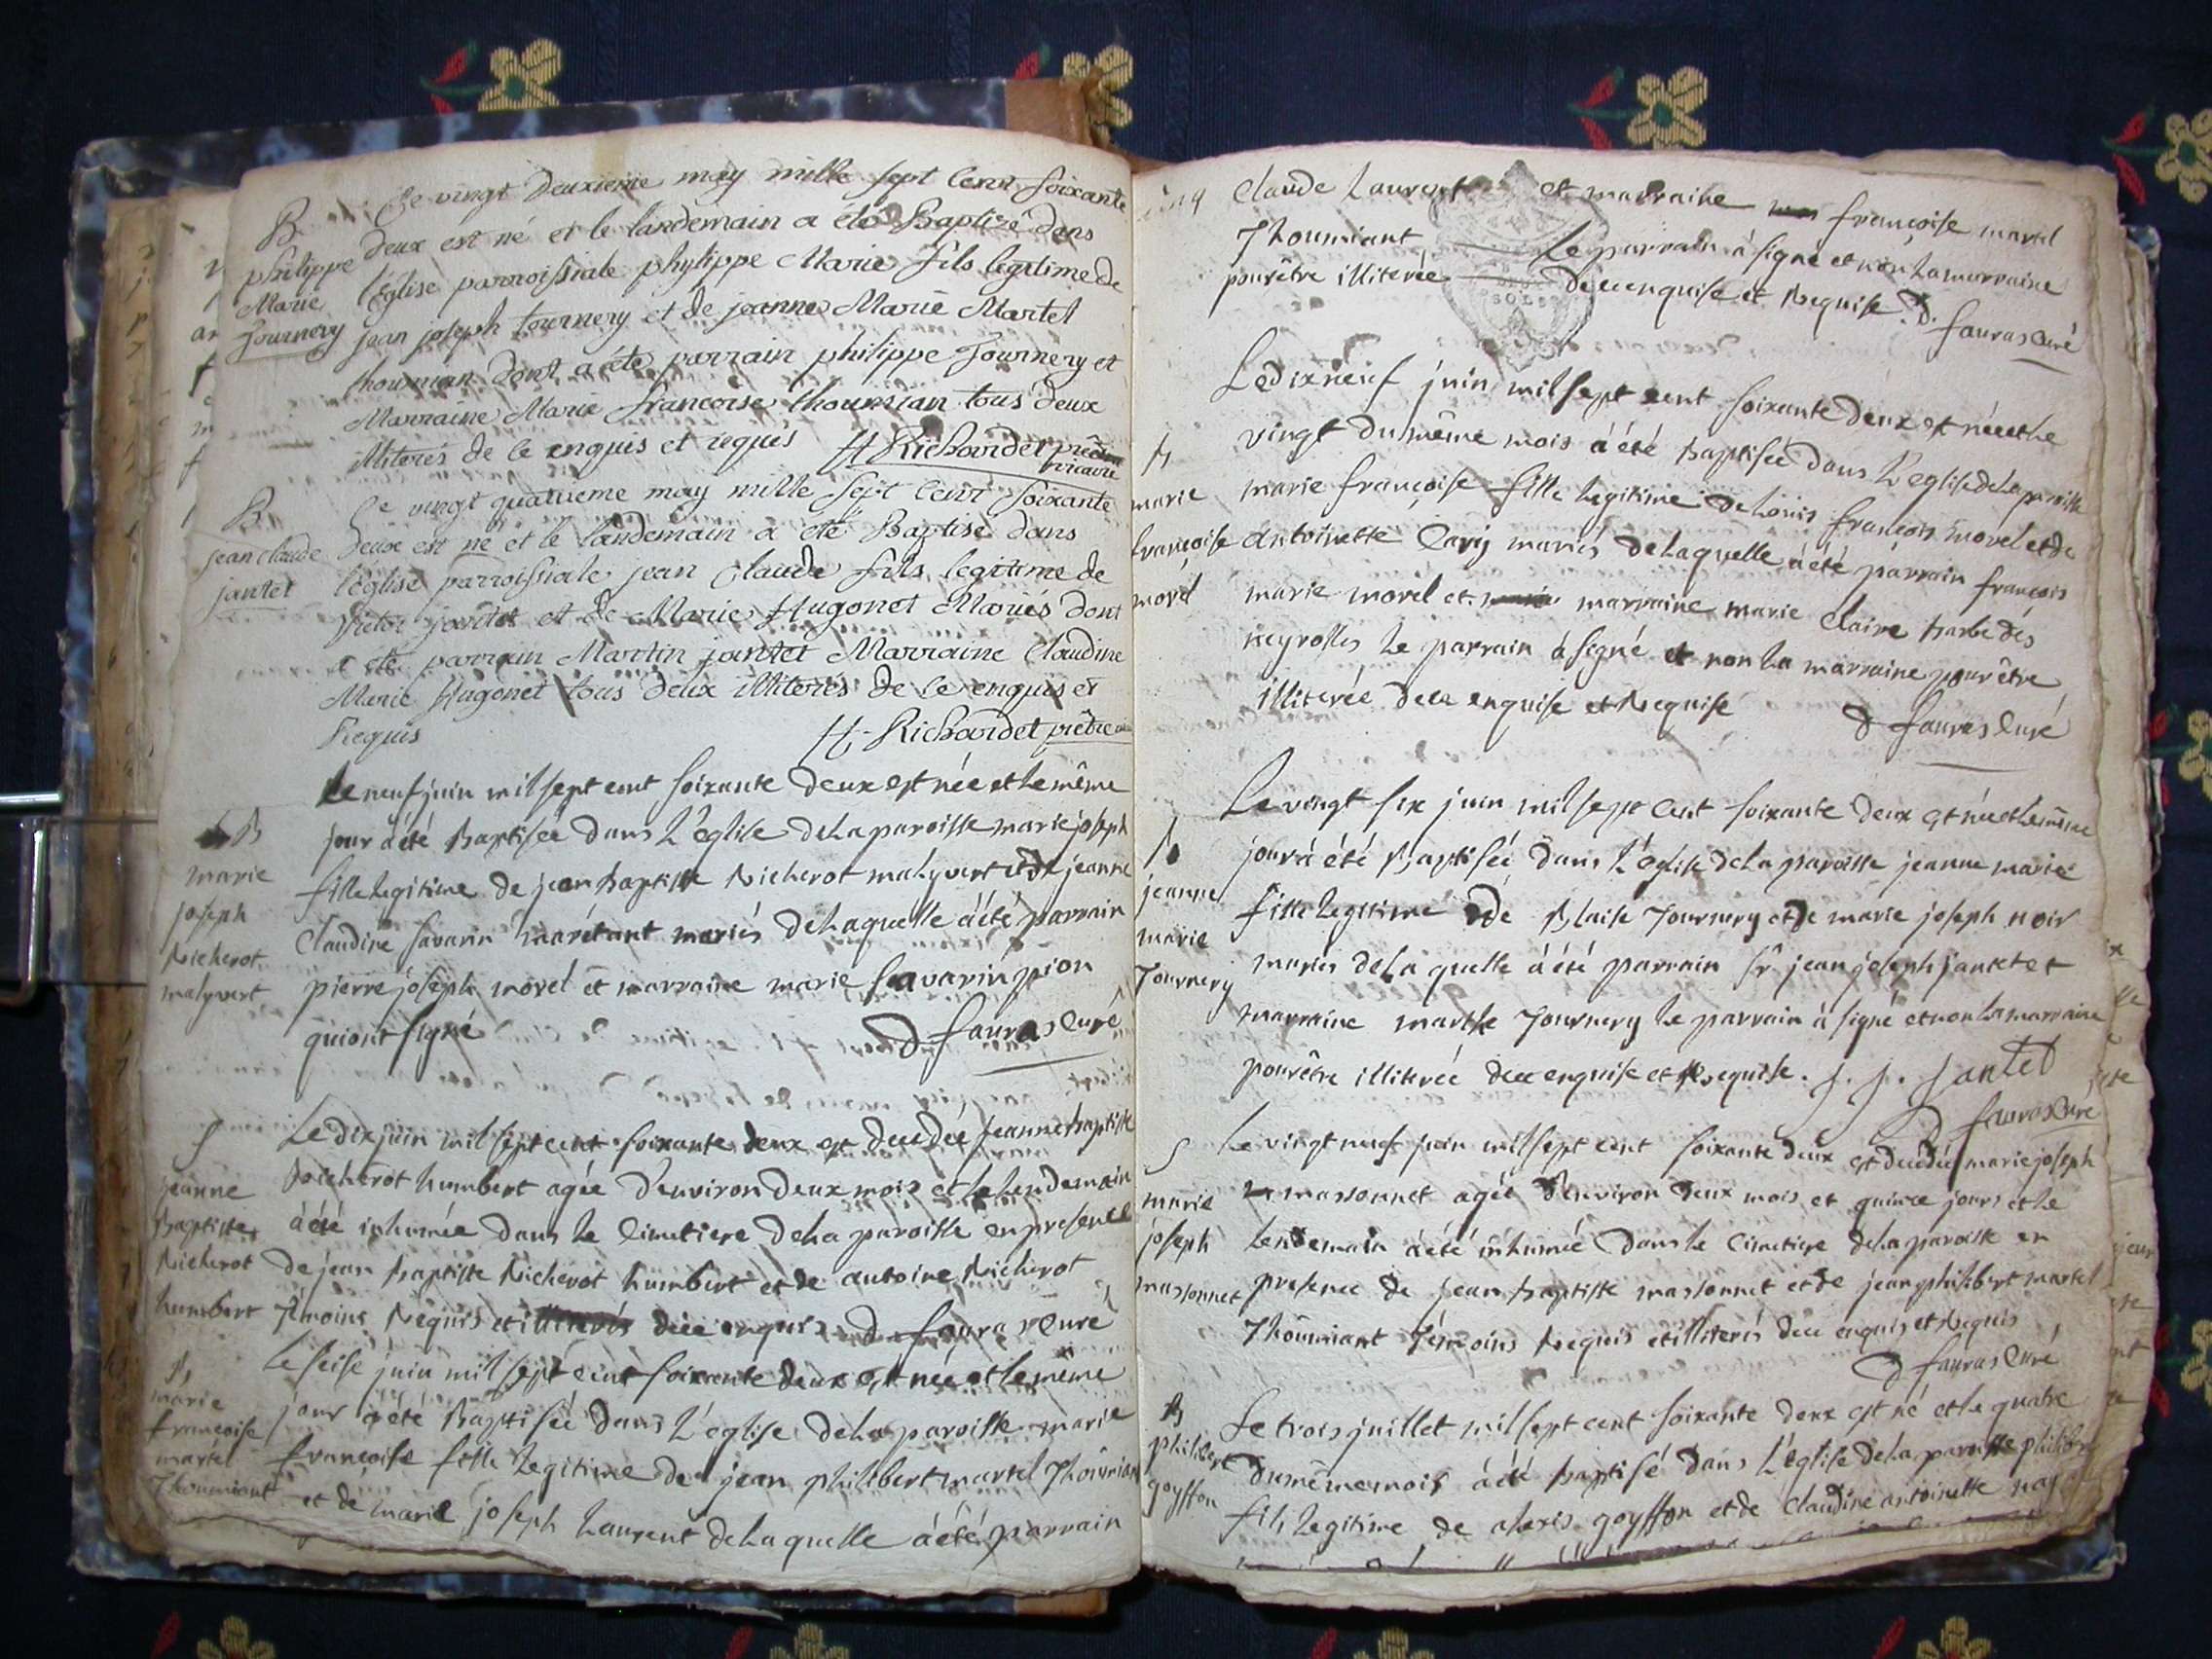 B
philippe
Marie
Tournery
Le vingt Deuxieme may mille sept Cent soixante
deux est né et le landemain a eté Baptizé dans
l'Eglise parroissiale phylippe Marie fils legitime de
jean joseph tournery et de jeanne Marie Martel
thoumian dont a été parrain philippe Tournery et
Marraine Marie francoise thoumian tous deux
illiterés de ce enquis et requis H Richardet prêtre
vicaire
B
jean claude
jantet
Le vingt quatrieme may mille Sept Cent Soixante
deux est né et le landemain a eté Baptisé dans
l'église parroissiale jean Claude fils legitime de
victor jantet et de Marie Hugonet Mariés dont
a eté parrain Martin jantet Marraine Claudine
Marie Hugonet tous deux illiterés de ce enquis et
Requis H. Richardet prêtre
B
marie
joseph
Nicherot
malyvert
Le neuf juin mil sept cent soixante deux est née et le même
jour a été Baptisée dans L'église de La paroisse marie joseph
fille legitime de jean Baptiste Nicherot malyvert et de jeanne
Claudine savarin marétant mariés de Laquelle a été parrain
pierre joseph morel et marraine marie savarin pion
qui ont signé D fauras Curé
S
jeanne
Baptiste
Nicherot
humbert
Le dix juin mil sept cent soixante deux est decedée jeanne baptiste
Nicherot humbert agée d'environ deux mois et le lendemain
a été inhumée dans le Cimetiere de La paroisse en presence
de jean baptiste Nicherot humbert et de antoine Nicherot
témoins Requis et illiterés de ce enquis D fauras Curé
B
marie
françoise
martel
Thoumiant
Le seise juin mil sept cent soixante deux est née et le même
jour a été Baptisée dans L'église de La paroisse marie
françoise fille Legitime de jean philibert martel Thoumian
et de marie joseph Laurent de Laquelle a été parrain
Claude Laurent et marraine françoise martel
Thoumiant Le parrain a signé et non La marraine
pour être illiterée de ce enquise et Requise. D. fauras Curé
B
marie
françoise
morel
Le dix neuf juin mil sept cent soixante deux est née et le
vingt du même mois a été Baptisée dans L'eglise de La paroisse
marie françoise fille Legitime de Louis françois morel et de
Antoinette mariés de Laquelle a été parrain françois
marie morel et marraine marie Claire barbe des
neyrolles Le parrain a signé et non La marraine pour être
illiterée de ce enquise et Requise D fauras Curé
B
jeanne
marie
Tournery
Le vingt six juin mil sept Cent soixante deux est née et le même
jour a été Baptisée dans L'église de La paroisse jeanne marie
fille Legitime de Blaise Tournery et de marie joseph noir
mariés de La quelle a été parrain Sr jean joseph jantet et
marraine marthe Tournery Le parrain a signé et non La marraine
pour être illiterée de ce enquise et Requise. J. J. Jantet
D fauras Curé
S
marie
joseph
massonnet
Le vingt neuf juin mil sept cent soixante deux est decedée marie joseph
massonnet agée d'environ deux mois et quinze jours et le
lendemain a été inhumée dans le Cimetiere de La paroisse en
presence de jean baptiste massonnet et de jean philibert martel
Thoumiant témoins Requis et illiterés de ce enquis et Requis
D fauras Curé
B
philibert
goyffon
Le trois juillet mil sept cent soixante deux est né et le quatre
du même mois a été Baptisé dans L'église de La paroisse philibert
fils Legitime de alexis goyffon et de Claudine antoinette